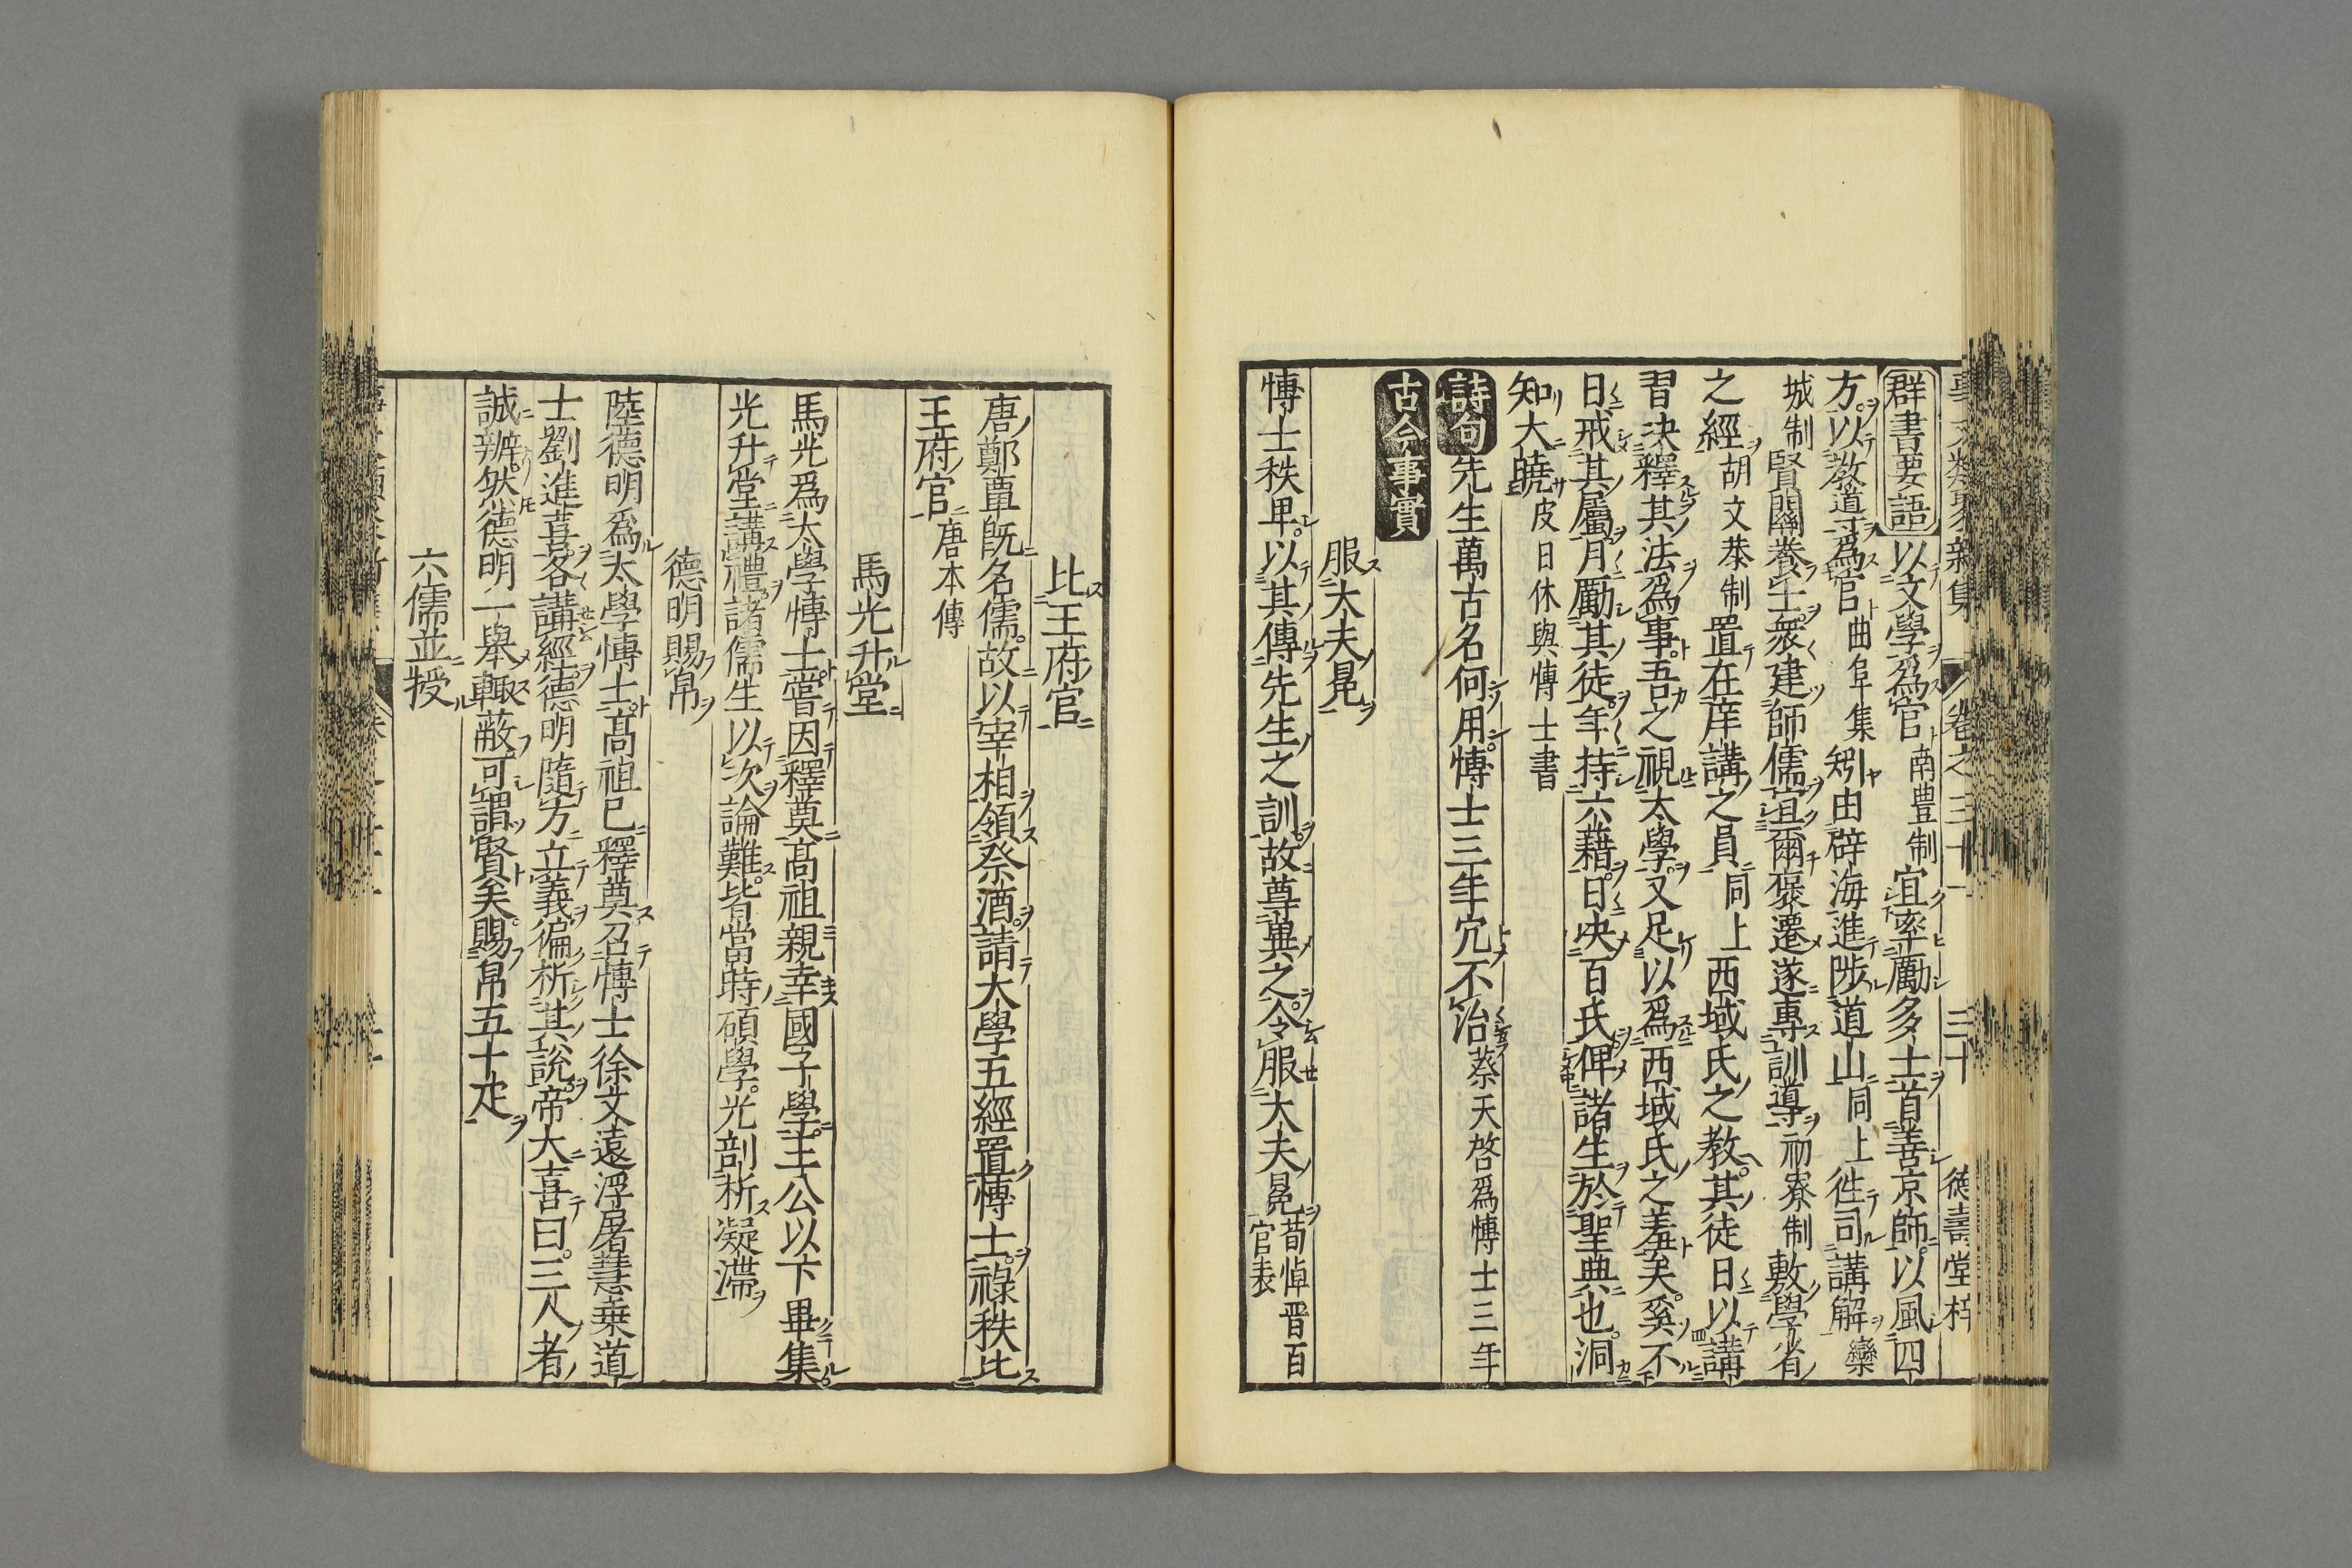 事文類聚新集 卷之三十一 三十 德壽堂梓
群書要語 以文學爲官南豊制宜率勵多士首善京師以風四
方以教道爲官曲阜集矧由辟海進陟道山同上徃司講解欒
城制賢關養士衆建師儒宜爾褒遷遂專訓導初寮制敷學省
之經胡文恭制置在庠講之員同上西域氏之教其徒日以講
習决釋其法爲事吾之視太學又足以爲西域氏之羞矣奚不
日戒其屬月勵其徒年持六藉日决百氏俾諸生於聖典也洞
知大曉皮日休與博士書
詩句 先生萬古名何用博士三年冗不治蔡天啓爲博士三年
古今事實
服大夫冕
博士秩卑以其傳先生之訓故尊異之令服大夫冕荀悼晋百官表
比王府官
唐鄭覃既名儒故以宰相領祭酒請大學五經置博士祿秩比
王府官唐本傳
馬光升堂
馬光爲太學博士嘗因釋奠髙祖親幸國子學王公以下畢集
光升堂講禮諸儒生以次論難皆當時碩學光剖析凝滯
德明賜帛
陸德明爲太學博士髙祖已釋奠召博士徐文遠浮屠慧乗道
士劉進喜各講經德明隨方立義徧析其說帝大喜曰三人者
誠辨然德明一舉輙蔽可謂賢矣賜帛五十疋
六儒並授